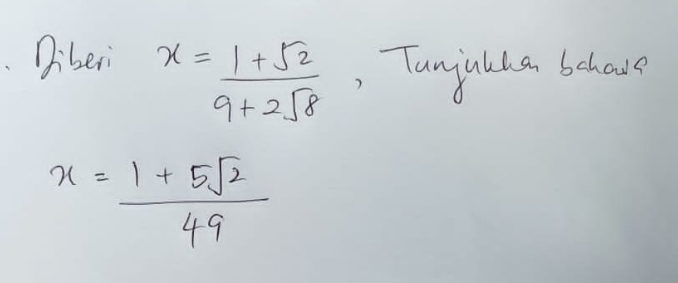 . Diberi x = (1 + √2)/(9 + 2√8) , Tunjukkan bahawa
x = (1 + 5√2)/49